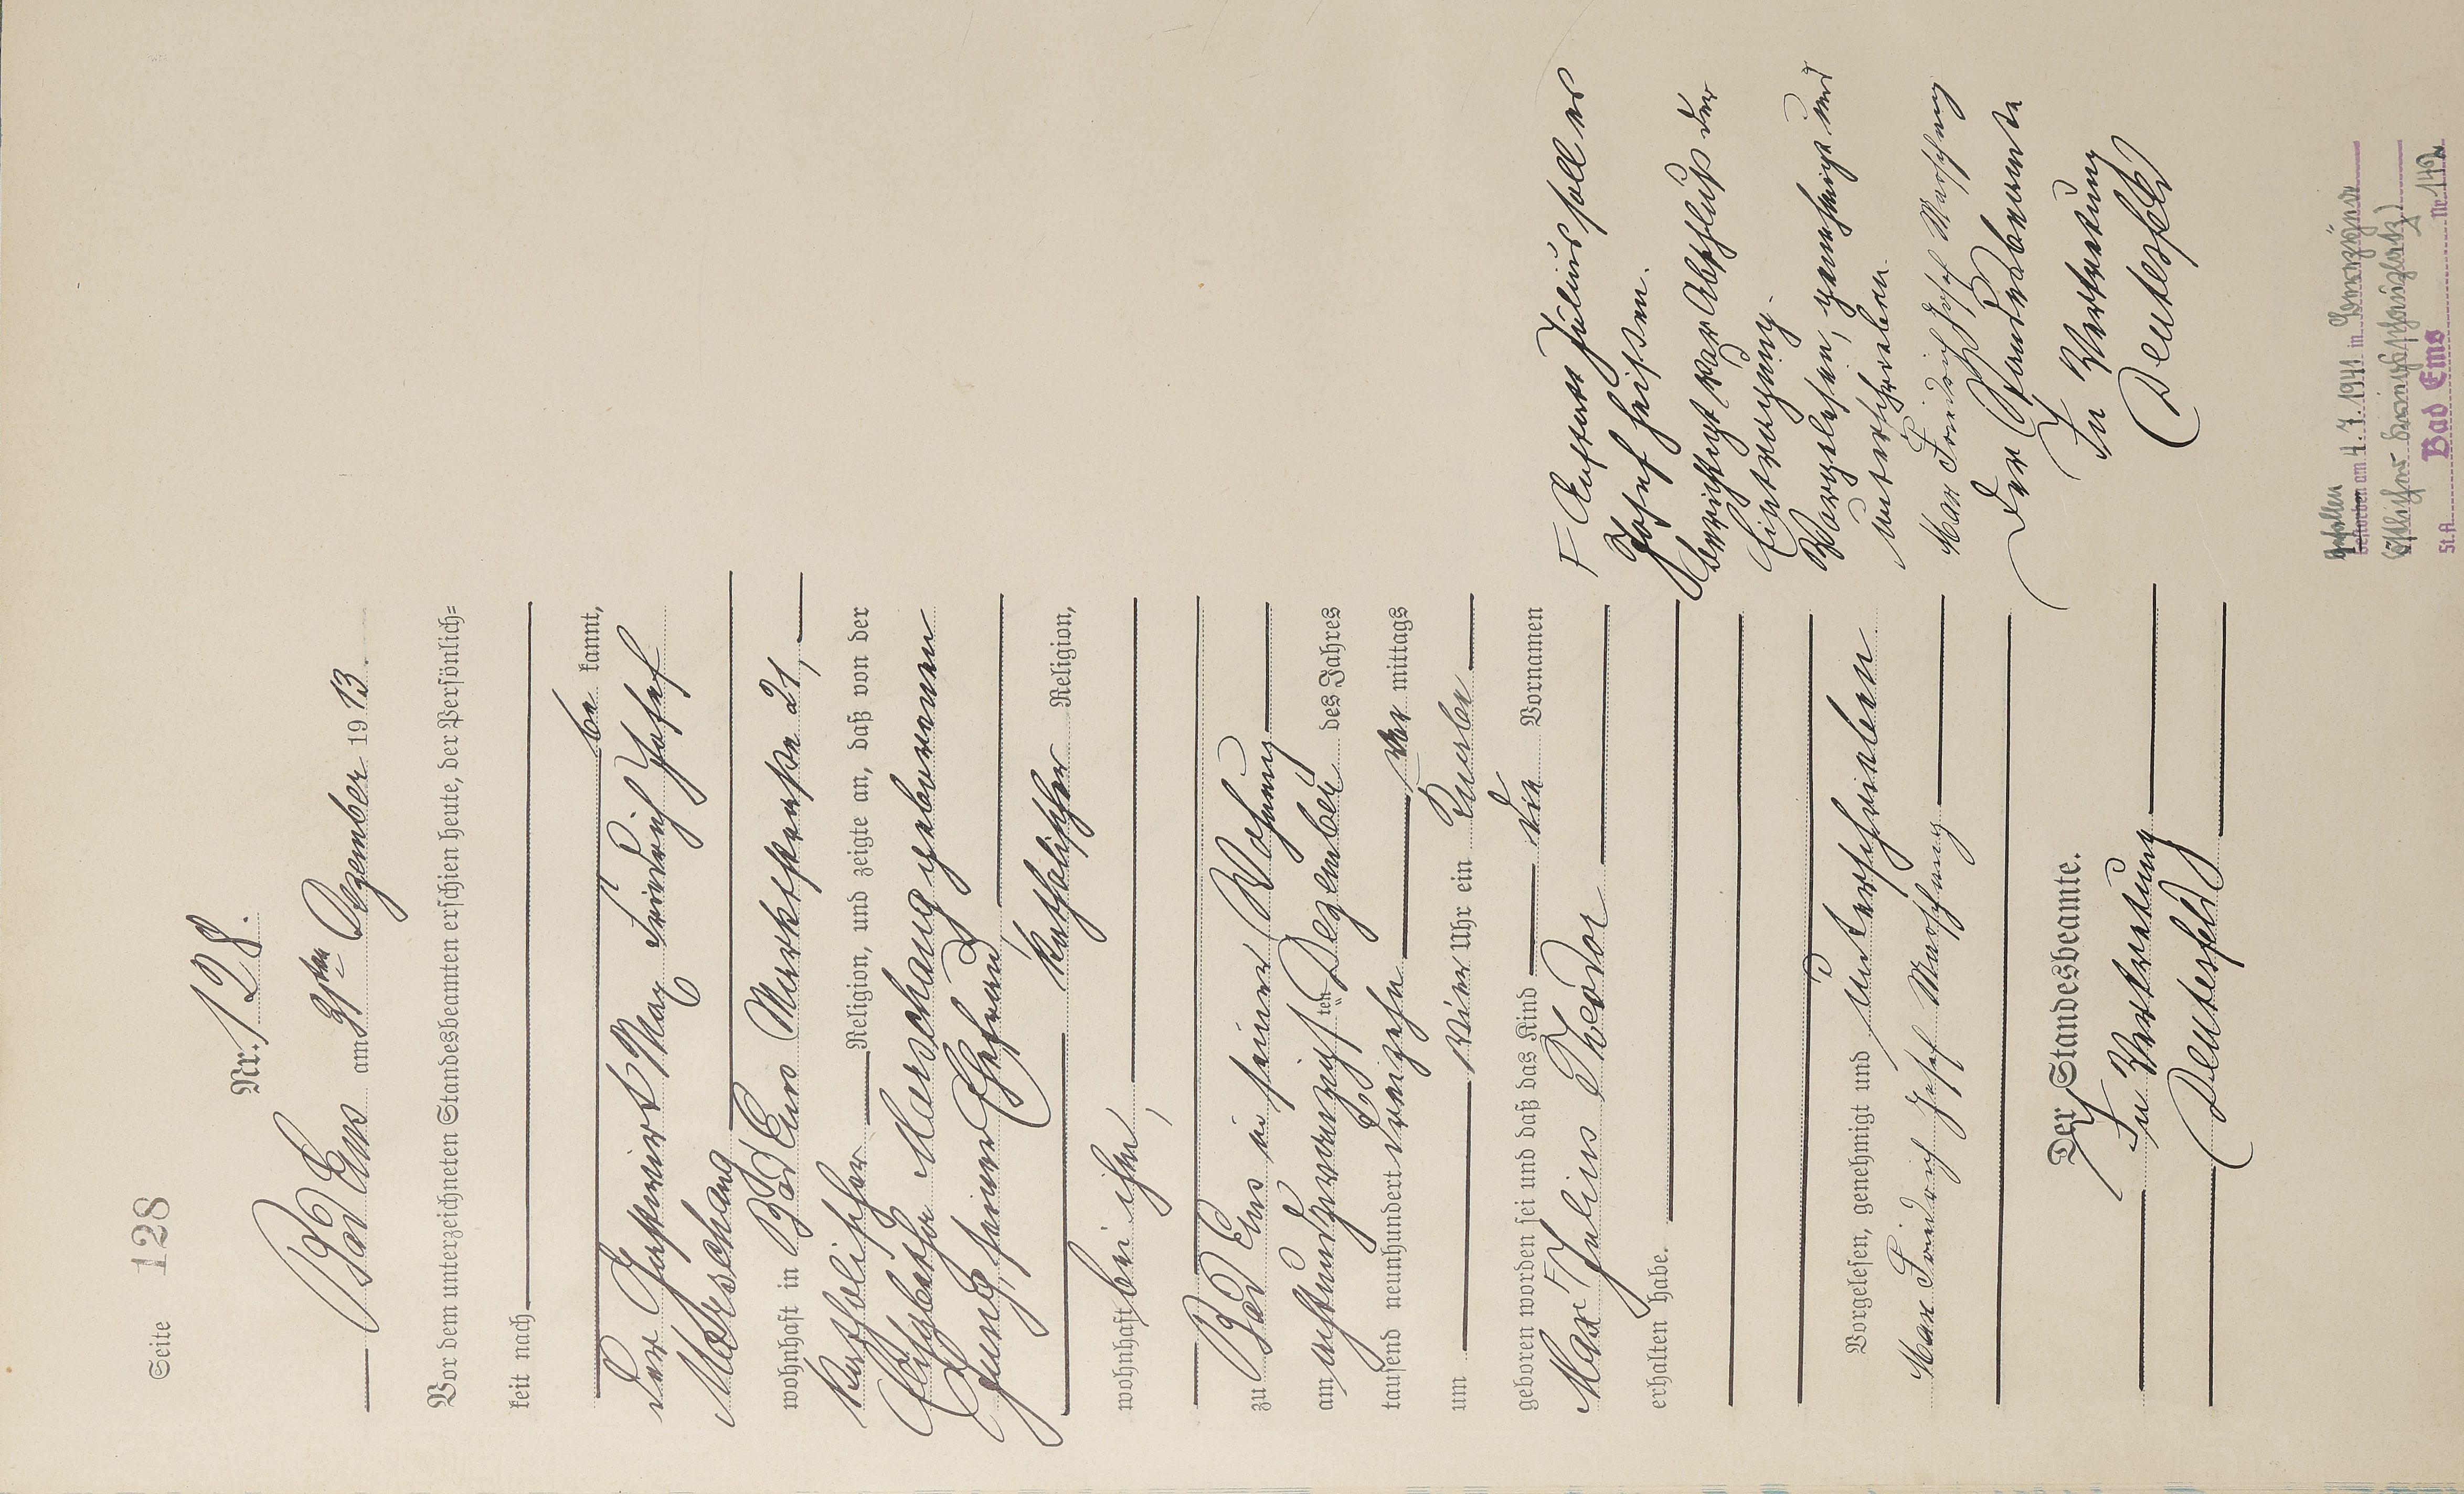 Seite 128
Nr. 128.
Bad Ems am 31ten Dezember 1913.
Vor dem unterzeichneten Standesbeamten erschien heute, der Persönlich=
keit nach
be kannt,
der Gastwirt Max Friedrich Josef
Marschang
wohnhaft in Bad Ems Marktstraße 21,
katholischer Religion, und zeigte an, daß von der
Elisabetha Marschang geborenen
Jung, seiner Ehefrau
katholischer Religion,
wohnhaft bei ihm,
zu Bad Ems in seiner Wohnung
am achtundzwanzigsten Dezember des Jahres
tausend neunhundert dreizehn vor mittags
um vier Uhr ein Knabe
geboren worden sei und daß das Kind die Vornamen
Max Julius Theodor
erhalten habe.
Vorgelesen, genehmigt und unterschrieben
Max Friedrich Josef Marschang
Der Standesbeamte.
In Vertretung
Deutesfeld
Anstatt Julius soll es
Josef heißen.
Berichtigt vor Abschluß der
Eintragung.
Vorgelesen, genehmigt und
unterschrieben.
Max Friedrich Josef Marschang
Der Standesbeamte
In Vertretung
Deutesfeld
gefallen
gestorben am 4.7.1941 in
(östlicher Kriegsschauplatz)
St.A. Bad Ems Nr. 142